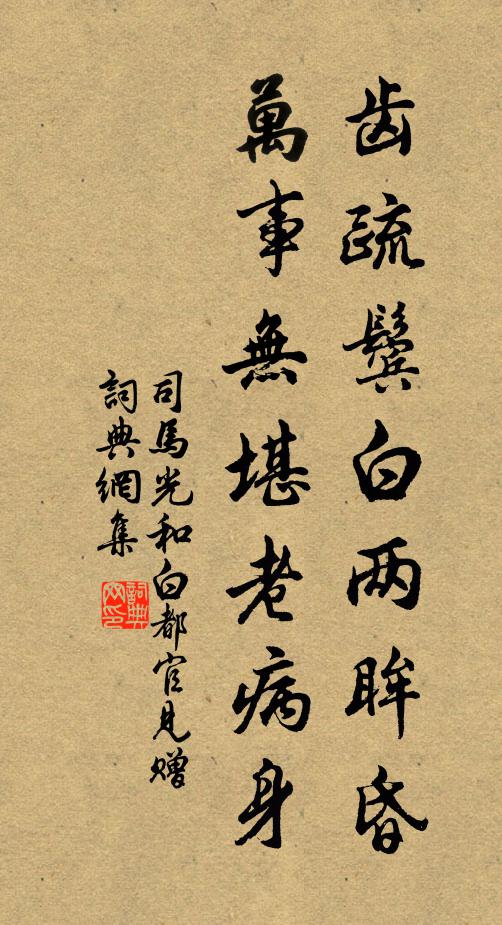 齿疏鬓白两眸昏
萬事無堪老病身
司馬光和白都官見贈
詞典網集
詞典网印